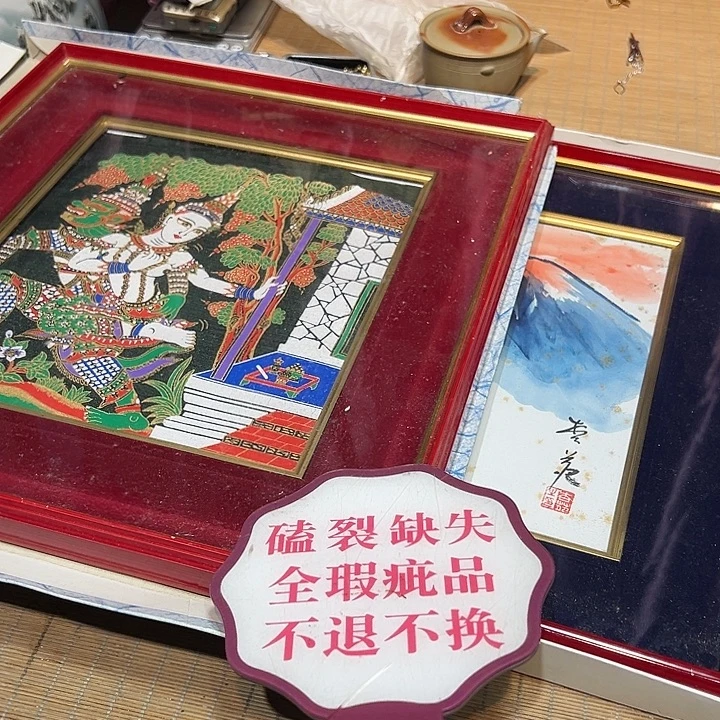 磕裂缺失
全瑕疵品
不退不换